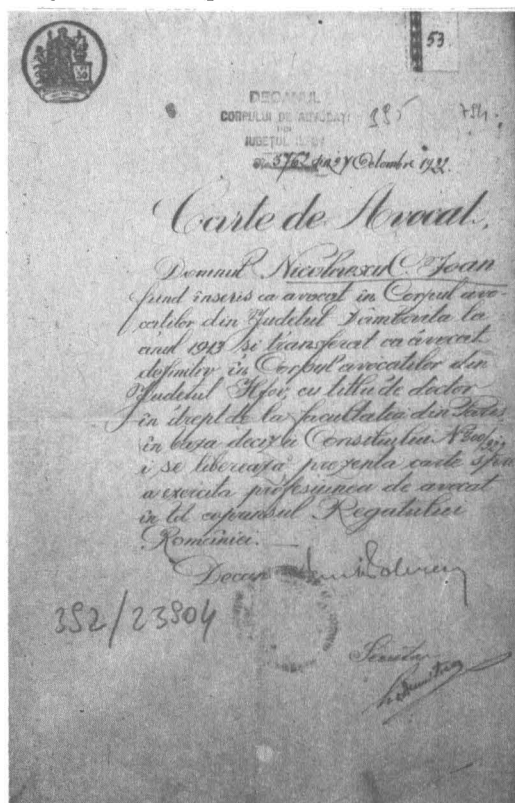 53
DECANUL
CORPULUI DE AVOCAȚI
DIN
JUDEȚUL ILFOV
No. 5762 din 27 Octombrie 1922.
395
794
Carte de Avocat.
Domnul Nicolaescu C. Ioan
fiind înscris ca avocat în Corpul avo-
catilor din Judetul Dâmbovita la
anul 1913 si transferat ca avocat
definitiv in Corpul avocatilor din
Judetul Ilfov, cu titlu de doctor
în drept de la facultatea din Paris
în baza deciziei Consiliului No
i se liberează prezenta carte spre
a exercita profesiunea de avocat
in tot cuprinsul Regatului
României.
Decan
392/23904